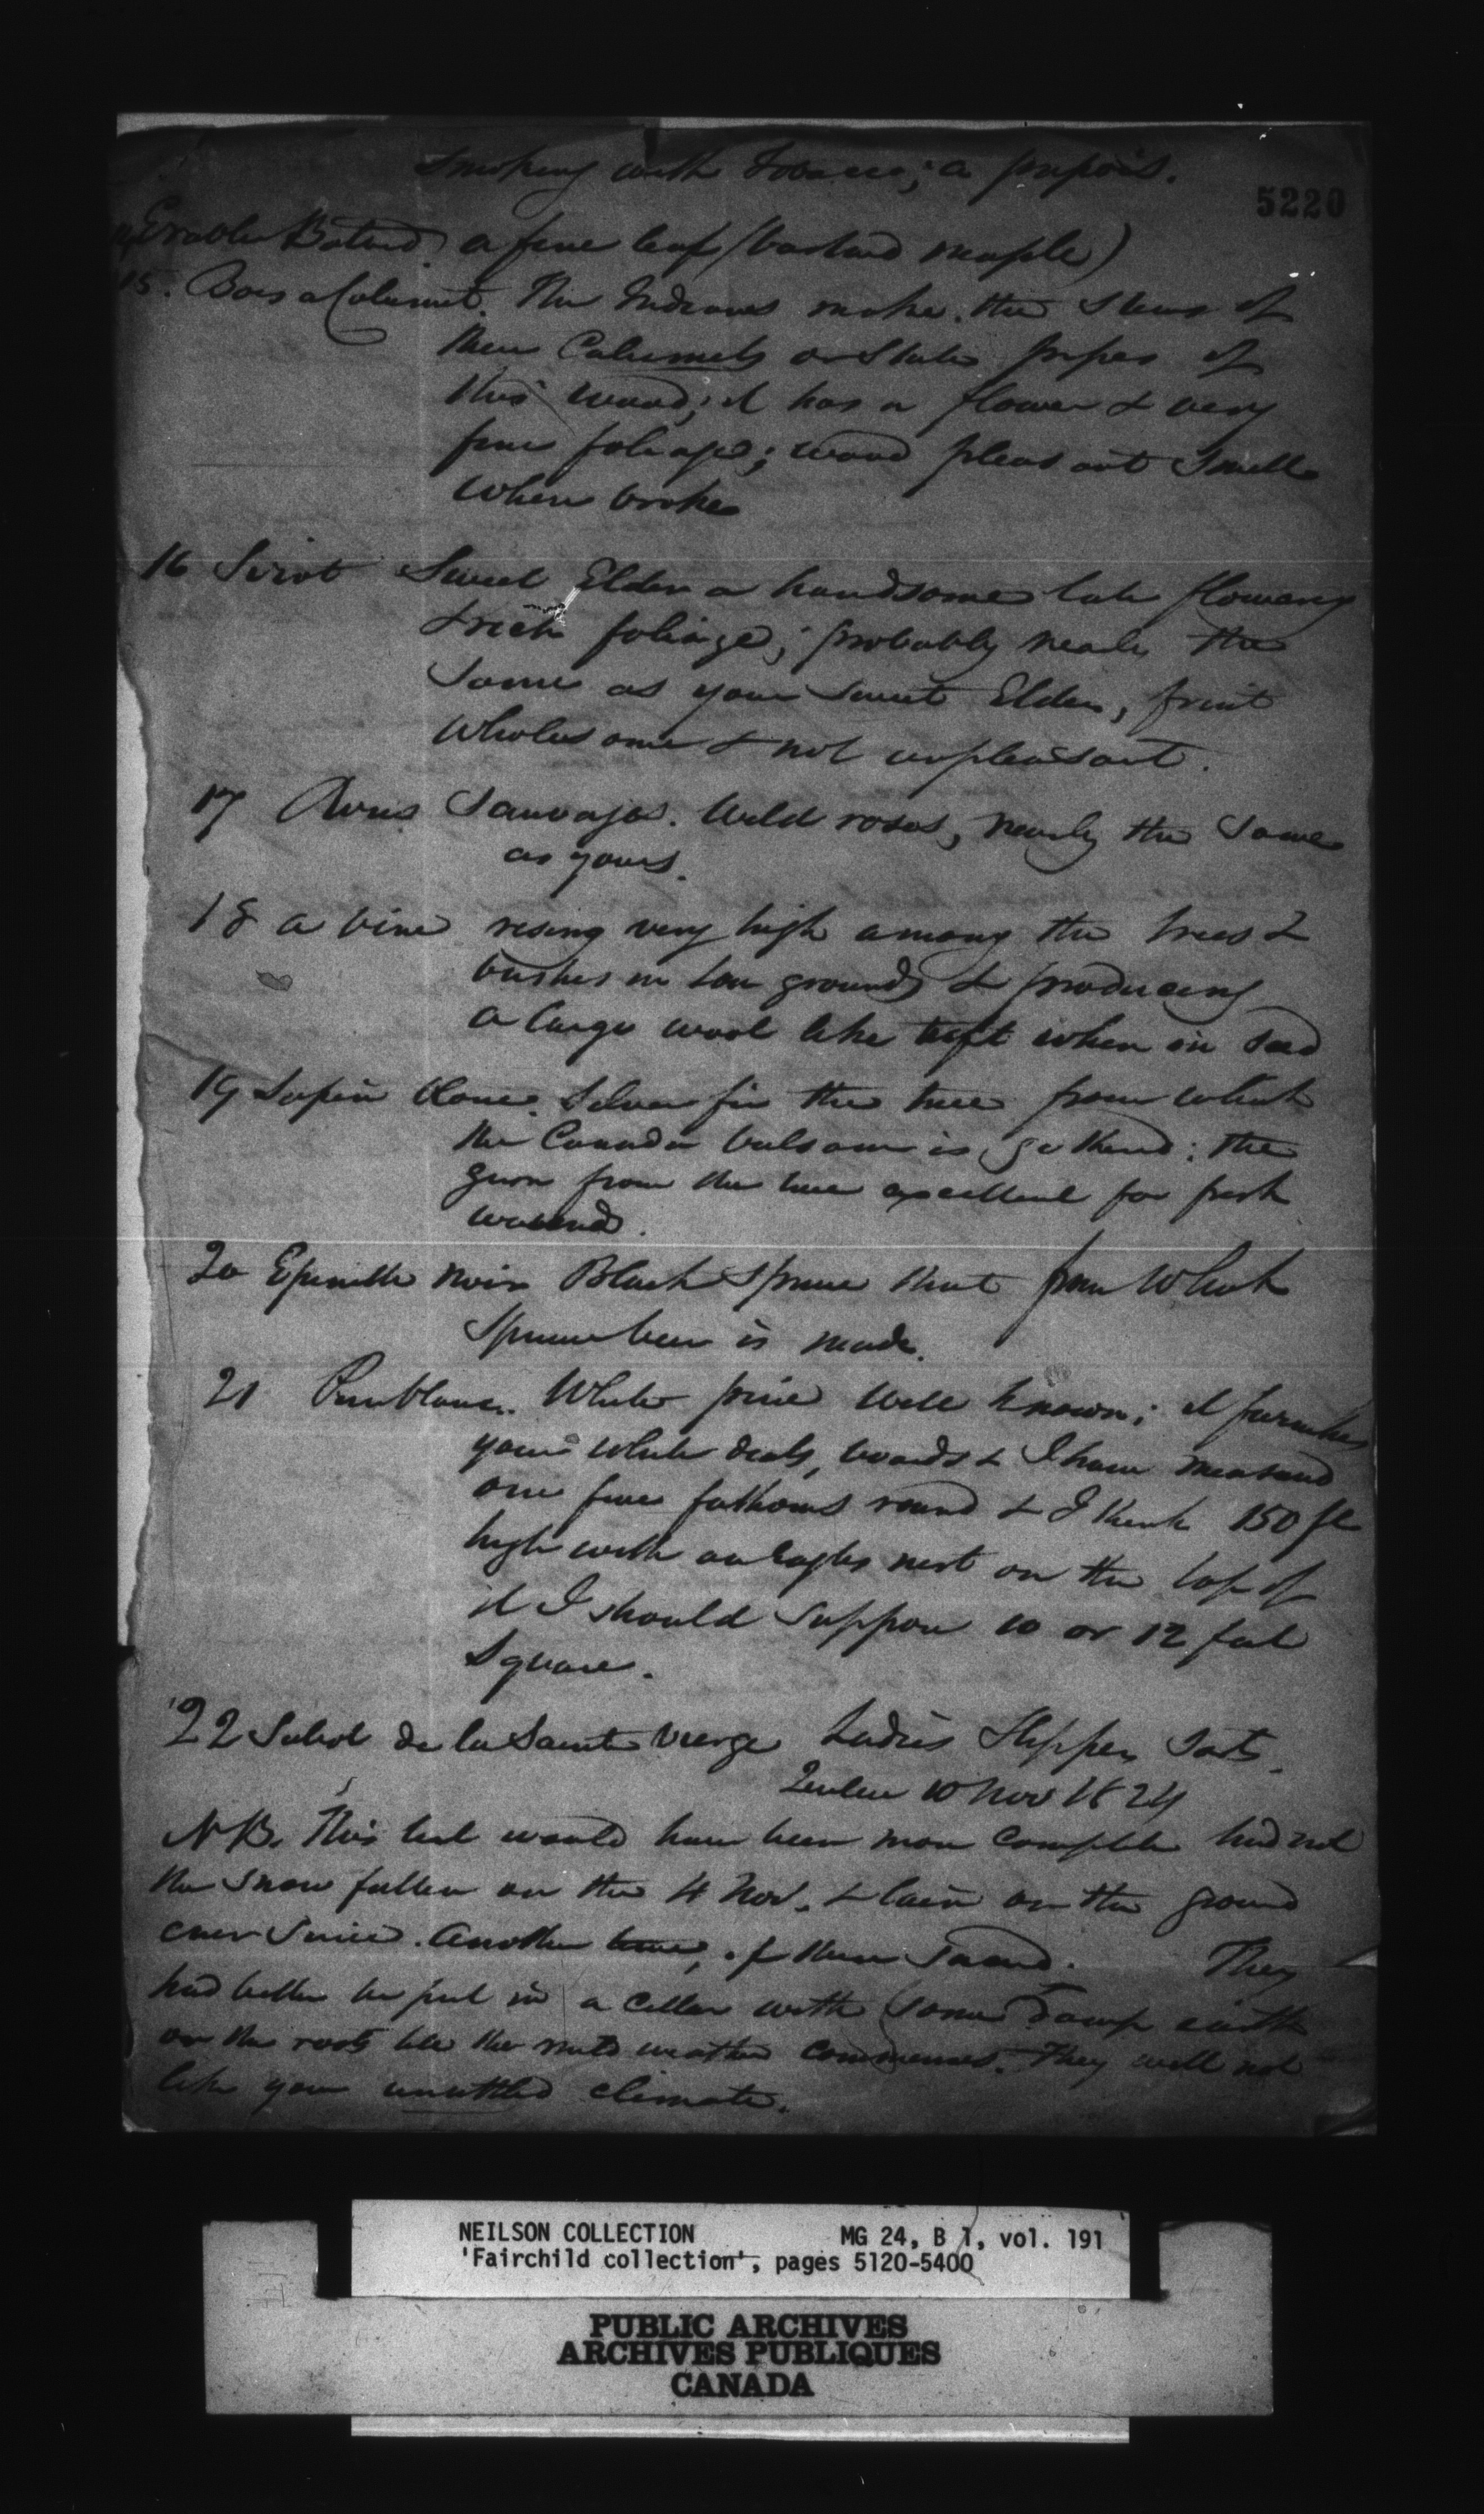 smoking with tobacco; a
5220
14 Erable Batard a fine leaf (bastard maple)
15. Bois a Calumet. The Indians make the stems of
their Calumets or State pipes of
this wood; it has a flower & very
fine foliage; wood pleasant smell
when broke
16 Sirot Sweet Elder a handsome late flowering
& rich foliage; probably nearly the
same as your sweet Elder, fruit
wholesome & not unpleasant.
17 Sauvage. Wild roses, nearly the same
as yours.
18 a vine rising very high among the trees &
bushes in low grounds & producing
a large wool like tuft when in seed
19 Sapin blanc. Silver fir the tree from which
the Canada balsam is gathered: the
gum from the tree excellent for fresh
wounds.
20 Epinette noir Black spruce that from which
Spruce beer is made.
21 Pin blanc. White pine well known; it furnishes
your white deals, boards & I have measured
one five fathoms round & I think 150 ft
high with an eagles nest on the top of
it I should suppose 10 or 12 feet
square.
22 Sabot de la Sainte Vierge Ladies Slipper
Quebec 10 Nov 1824
NB. This list would have been more complete had not
the snow fallen on the 4 Nov. & lain on the ground
ever since. Another They
had better be put in a cellar with some damp earth
on the roots till the mild weather commences. They will not
like your unsettled climate.
NEILSON COLLECTION MG 24, B 1, vol. 191
'Fairchild collection', pages 5120-5400
PUBLIC ARCHIVES
ARCHIVES PUBLIQUES
CANADA